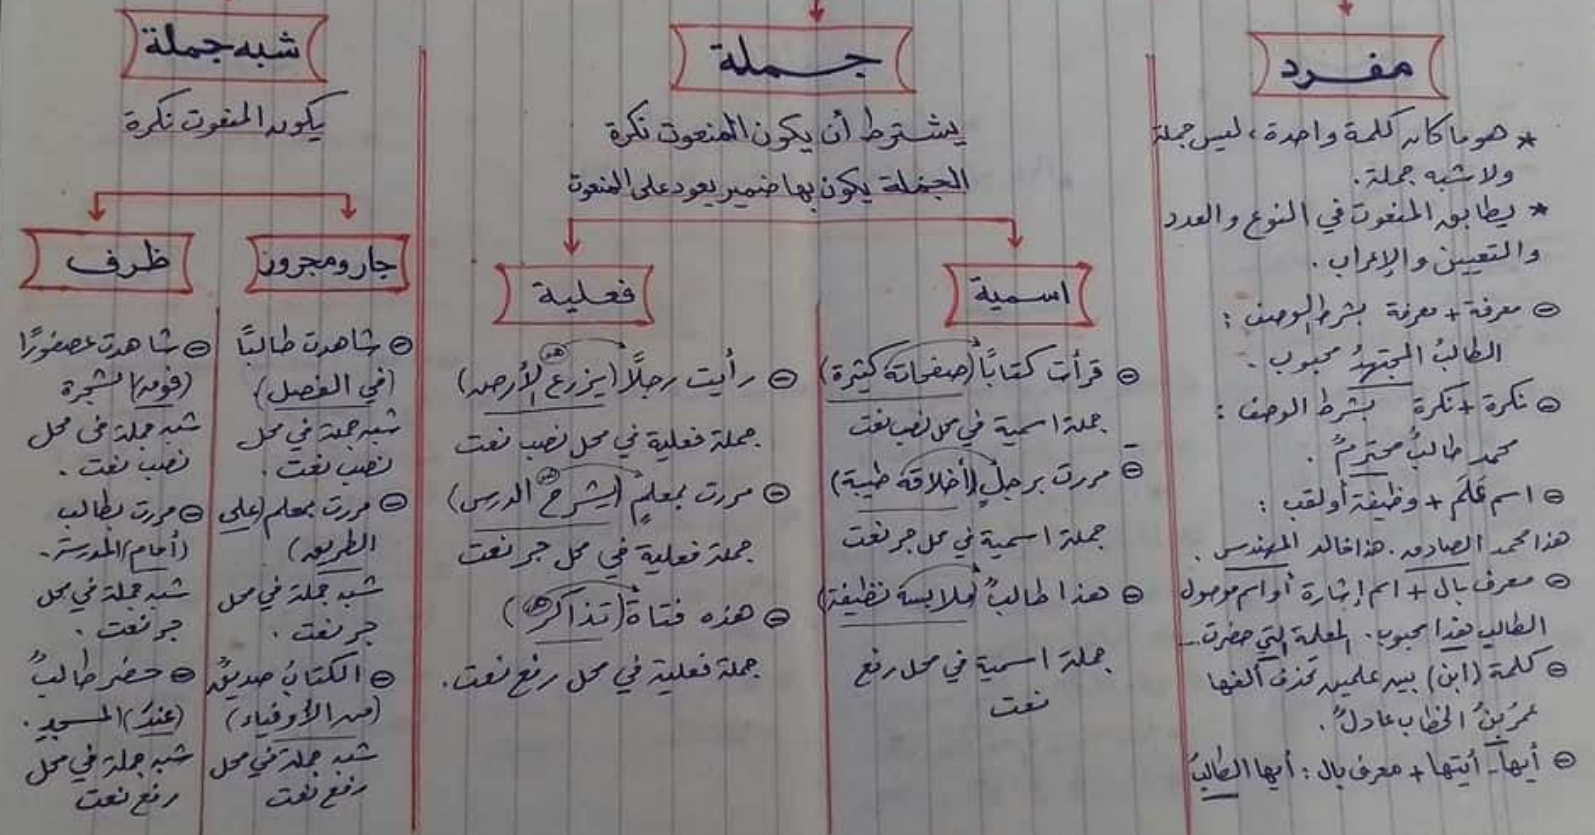 مفرد
* هو ما كان كلمة واحدة، ليس جملة
ولا شبه جملة.
* يطابق المنعوت في النوع والعدد
والتعيين والإعراب.
⊖ معرفة + معرفة بشرط الوصف:
الطالبُ المجتهدُ محبوب.
⊖ نكرة + نكرة بشرط الوصف:
محمد طالبٌ محترمٌ.
⊖ اسم عَلَم + وظيفة أو لقب:
هذا محمد الصادق. هذا خالد المهندس.
⊖ معرف بال + اسم إشارة أو اسم موصول
الطالب هذا محبوب. المعلمة التي حضرت..
⊖ كلمة (ابن) بين علمين تحذف ألفها
عمرُ بنُ الخطاب عادلٌ.
⊖ أيها - أيتها + معرف بال: أيها الطالبُ
جملة
يشترط أن يكون المنعوت نكرة
الجملة يكون بها ضمير يعود على المنعوت
اسمية
⊖ قرأت كتابًا (صفحاته كثيرة)
جملة اسمية في محل نصب نعت
⊖ مررت برجلٍ (أخلاقه طيبة)
جملة اسمية في محل جر نعت
⊖ هذا طالبٌ (ملابسه نظيفة)
جملة اسمية في محل رفع
نعت
فعلية
⊖ رأيت رجلًا (يزرع هو الأرض)
جملة فعلية في محل نصب نعت
⊖ مررت بمعلمٍ (يشرح هو الدرس)
جملة فعلية في محل جر نعت
⊖ هذه فتاة (تذاكر هي)
جملة فعلية في محل رفع نعت.
شبه جملة
يكون المنعوت نكرة
جار ومجرور
⊖ شاهدت طالبًا
(في الفصل)
شبه جملة في محل
نصب نعت.
⊖ مررت بمعلم (على
الطريق)
شبه جملة في محل
جر نعت.
⊖ الكتابُ صديقٌ
(من الأوفياء)
شبه جملة في محل
رفع نعت
ظرف
⊖ شاهدت عصفورًا
(فوق) الشجرة
شبه جملة في محل
نصب نعت.
⊖ مررت بطالب
(أمام) المدرسة.
شبه جملة في محل
جر نعت.
⊖ حضر طالبٌ
(عندَ) المسجدِ.
شبه جملة في محل
رفع نعت